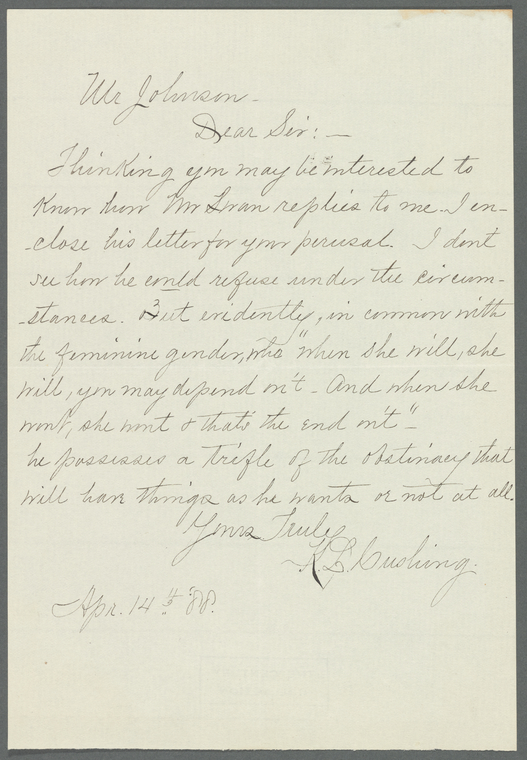 Mr Johnson -
Dear Sir: -
Thinking you may be interested to
Know how Mr Swan replies to me. I en-
-close his letter for your perusal. I dont
see how he could refuse under the circum-
-stances. But evidently, in common with
the feminine gender, who "when she will, she
will, you may depend on't - And when she
won't, she wont & that's the end on't" -
he possesses a trifle of the obstinacy that
will have things as he wants or not at all.
Yours Truly
K. L. Cushing.
Apr. 14th '88.